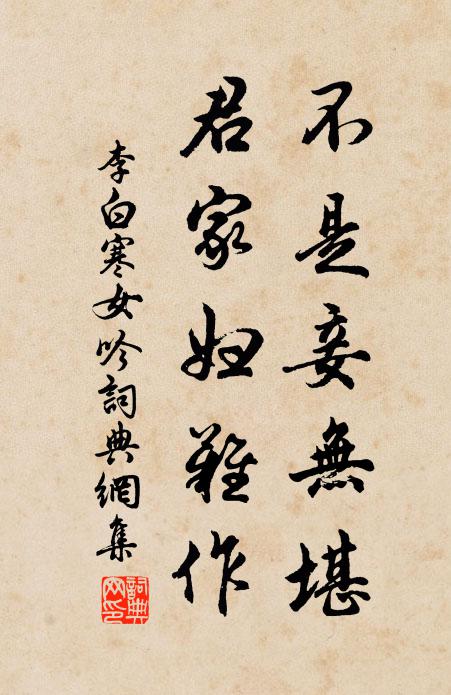 不是妾無堪
君家婦難作
李白寒女吟詞典網集
詞典
网印